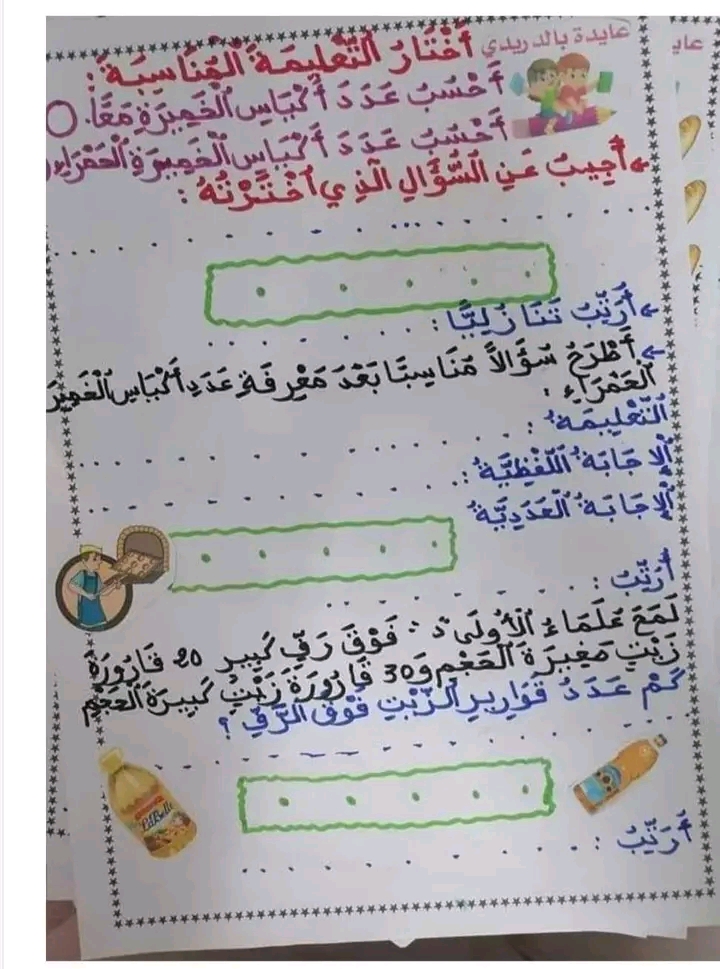 عايدة بالدريدي
أَخْتَارُ التَّعْلِيمَةَ الْمُنَاسِبَةَ :
أَحْسُبُ عَدَدَ أَكْيَاسِ الْخَمِيرَةِ مَعًا.
أَحْسُبُ عَدَدَ أَكْيَاسِ الْخَمِيرَةِ الْحَمْرَاءِ
أُجِيبُ عَنِ السُّؤَالِ الَّذِي اخْتَرْتُهُ :
أُرَتِّبُ تَنَازُلِيًّا :
أَطْرَحُ سُؤَالاً مُنَاسِبًا بَعْدَ مَعْرِفَةِ عَدَدِ أَكْيَاسِ الْخَمِيرَ
الْحَمْرَاءِ :
التَّعْلِيمَةُ :
الْإِجَابَةُ اللَّفْظِيَّةُ :
الْإِجَابَةُ الْعَدَدِيَّةُ
أُرَتِّبُ :
فَوْقَ رَفٍّ كَبِيرٍ 20 قَارُورَةَ
زَيْتٍ صَغِيرَةَ الْحَجْمِ وَ 30 قَارُورَةَ زَيْتٍ كَبِيرَةَ الْحَجْمِ
كَمْ عَدَدُ قَوَارِيرِ الزَّيْتِ فَوْقَ الرَّفِّ ؟
LaBelle
أُرَتِّبُ :
عاي